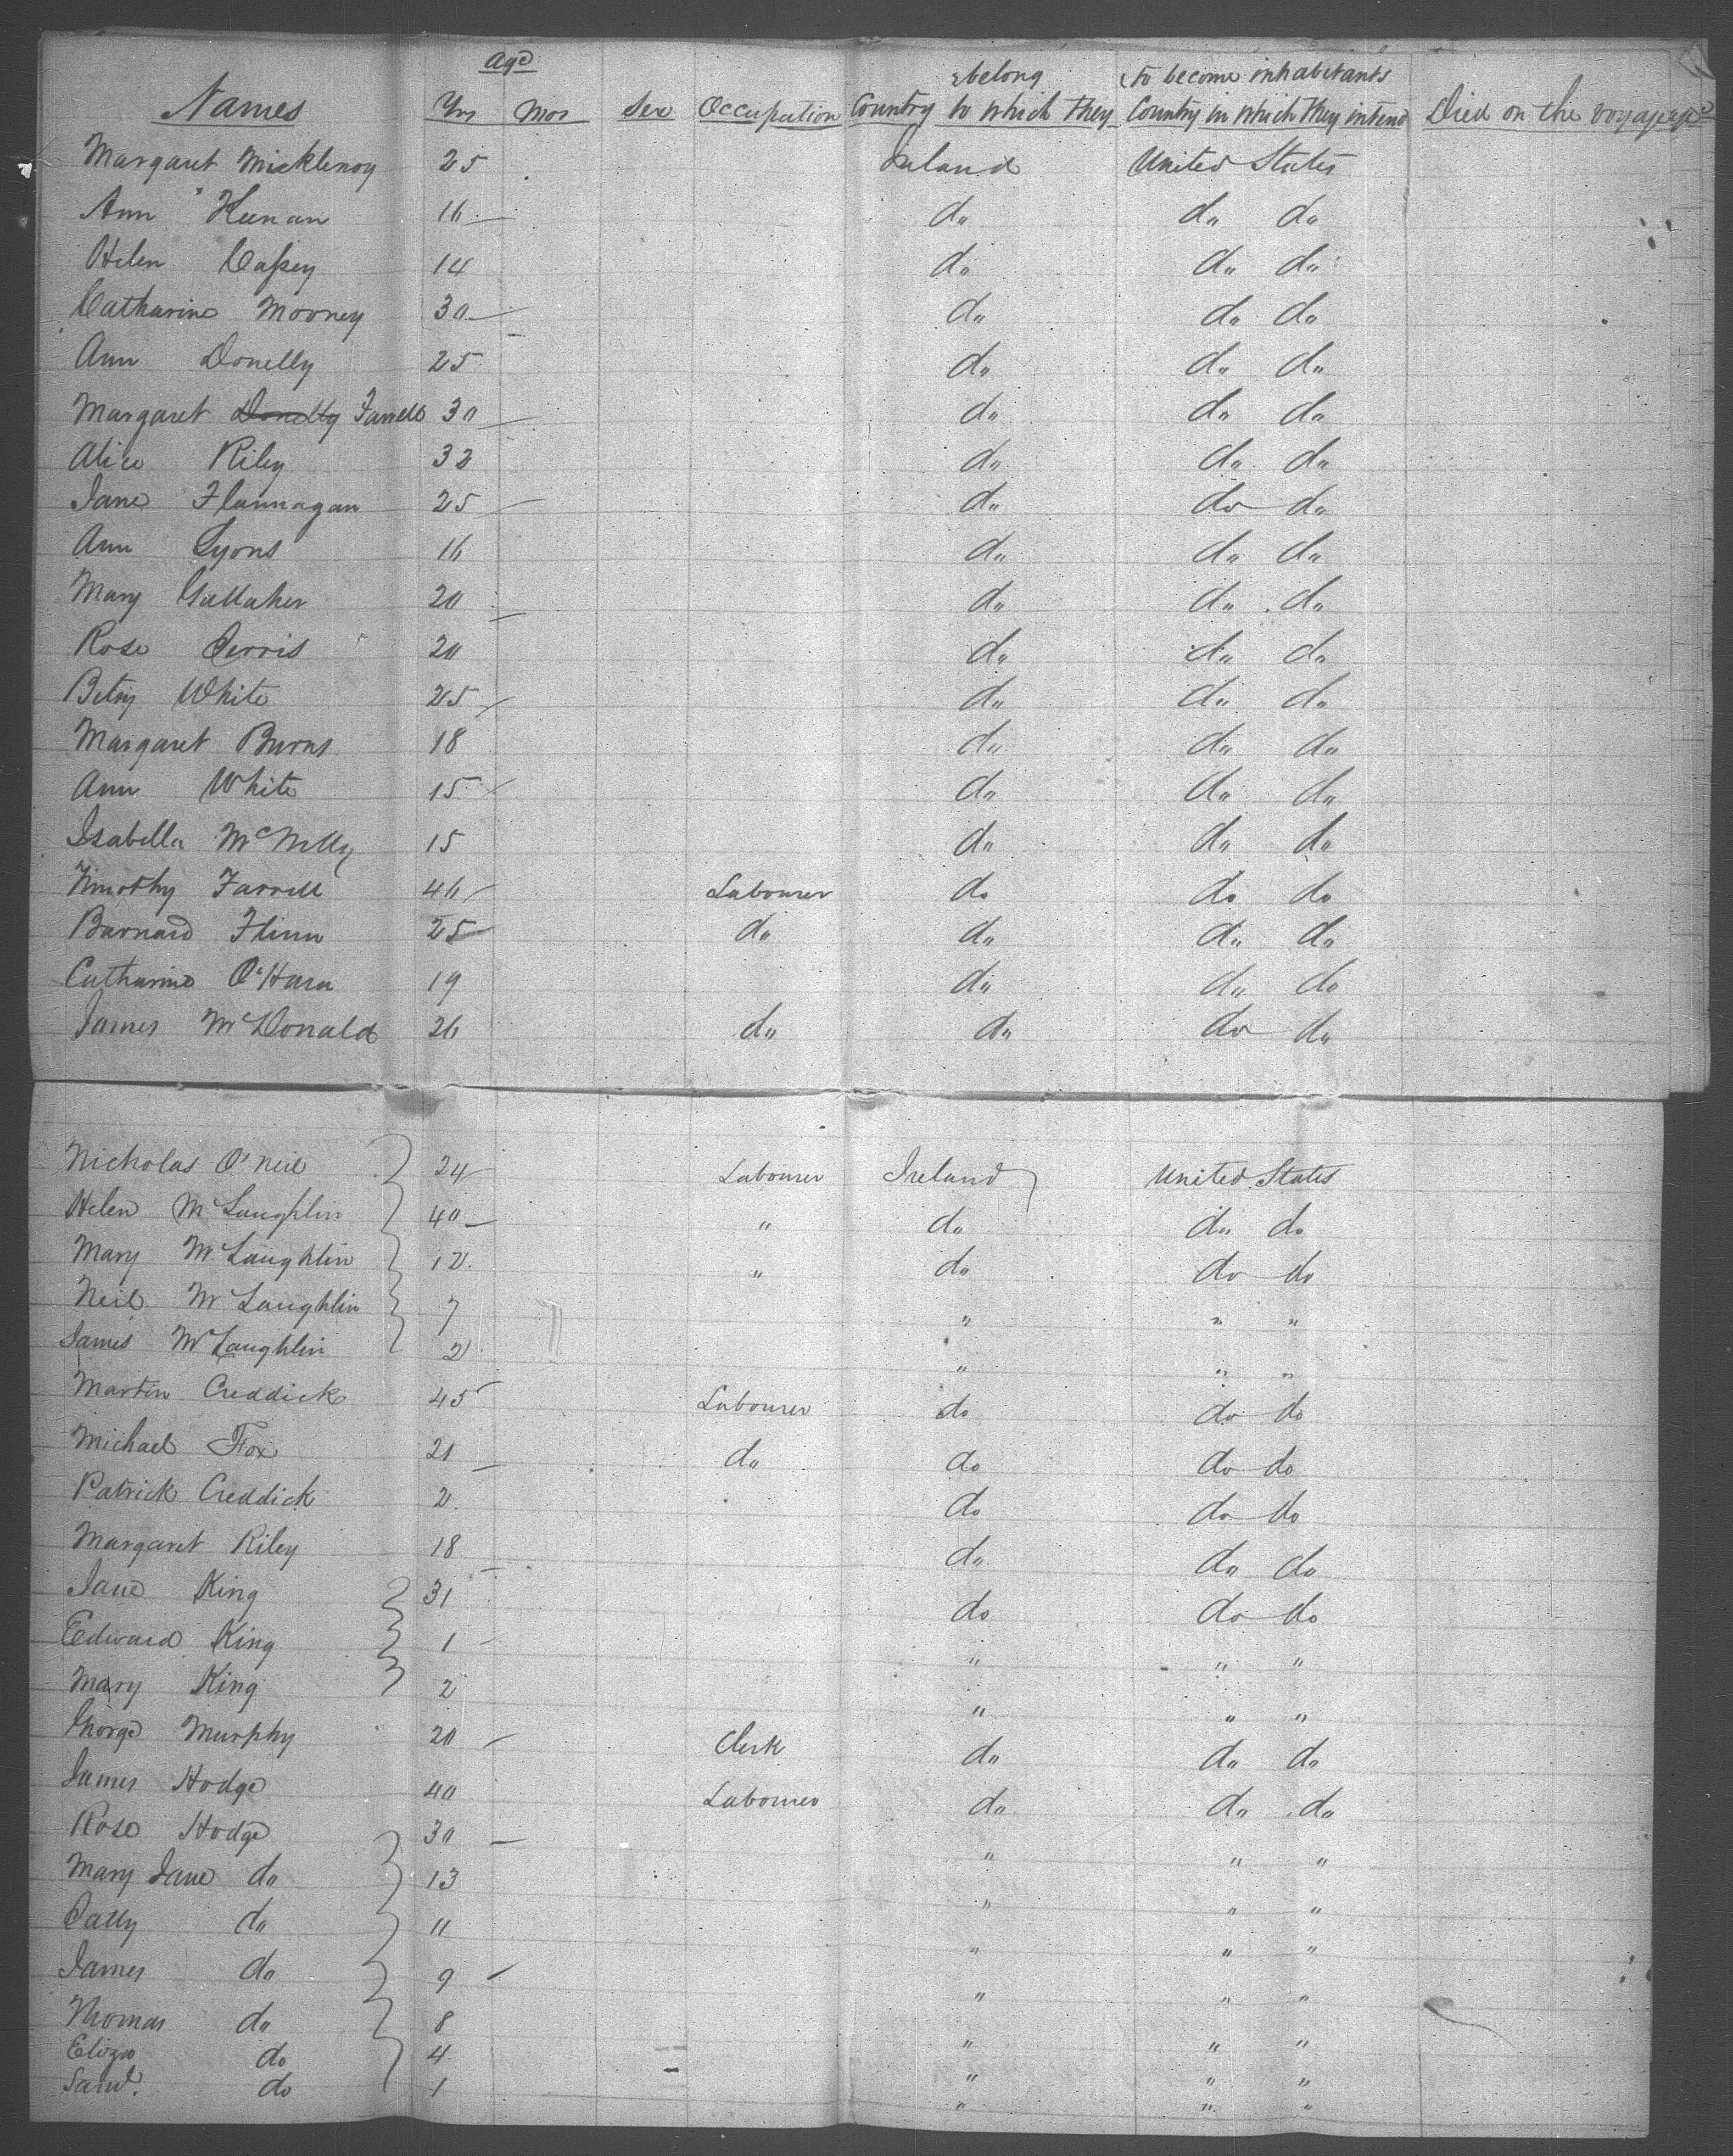 Age belong to become inhabitants
Names Yrs Mos Sex Occupation Country to which they Country in which they intend Died on the voyage
Margaret 25 Ireland United States
Ann Keenan 16 do do do
Helen Cassey 14 do do do
Catharine Mooney 30 do do do
Ann Donelly 25 do do do
Margaret Donelly Farrell 30 do do do
Alice Riley 32 do do do
Jane Flannagan 25 do do do
Ann Lyons 16 do do do
Mary Gallaher 20 do do do
Rose 20 do do do
Betsy White 25 do do do
Margaret Burns 18 do do do
Ann White 15 do do do
Isabella McNelly 15 do do do
Timothy Farrell 46 Labourer do do do
Barnard Flinn 25 do do do do
Catharine O'Hara 19 do do do
James McDonald 26 do do do do
Nicholas O'Neil 24 Labourer Ireland United States
Helen McLaughlin 40 " do do do
Mary McLaughlin 12 " do do do
Neil McLaughlin 7 " " "
James McLaughlin 2 " " "
Martin Creddick 45 Labourer do do do
Michael Fox 21 do do do do
Patrick Creddick 2 do do do
Margaret Riley 18 do do do
Jane King 31 do do do
Edward King 1 " " "
Mary King 2 " " "
George Murphy 20 Clerk do do do
James Hodge 40 Labourer do do do
Rose Hodge 30 " " "
Mary Jane do 13 " " "
Sally do 11 " " "
James do 9 " " "
Thomas do 8 " " "
Eliza do 4 " " "
Saml. do 1 " " "